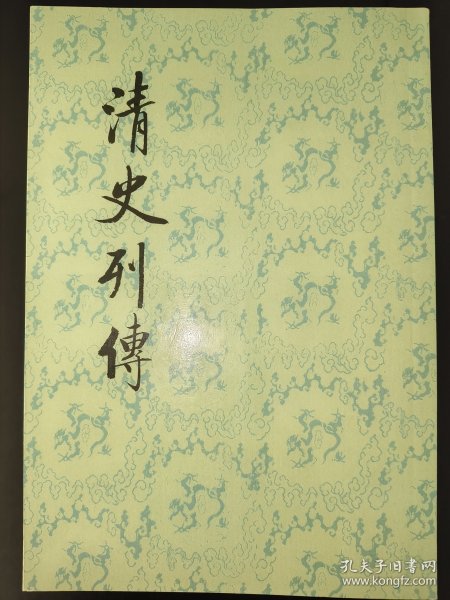 清史列傳
孔夫子旧书网
www.kongfz.com